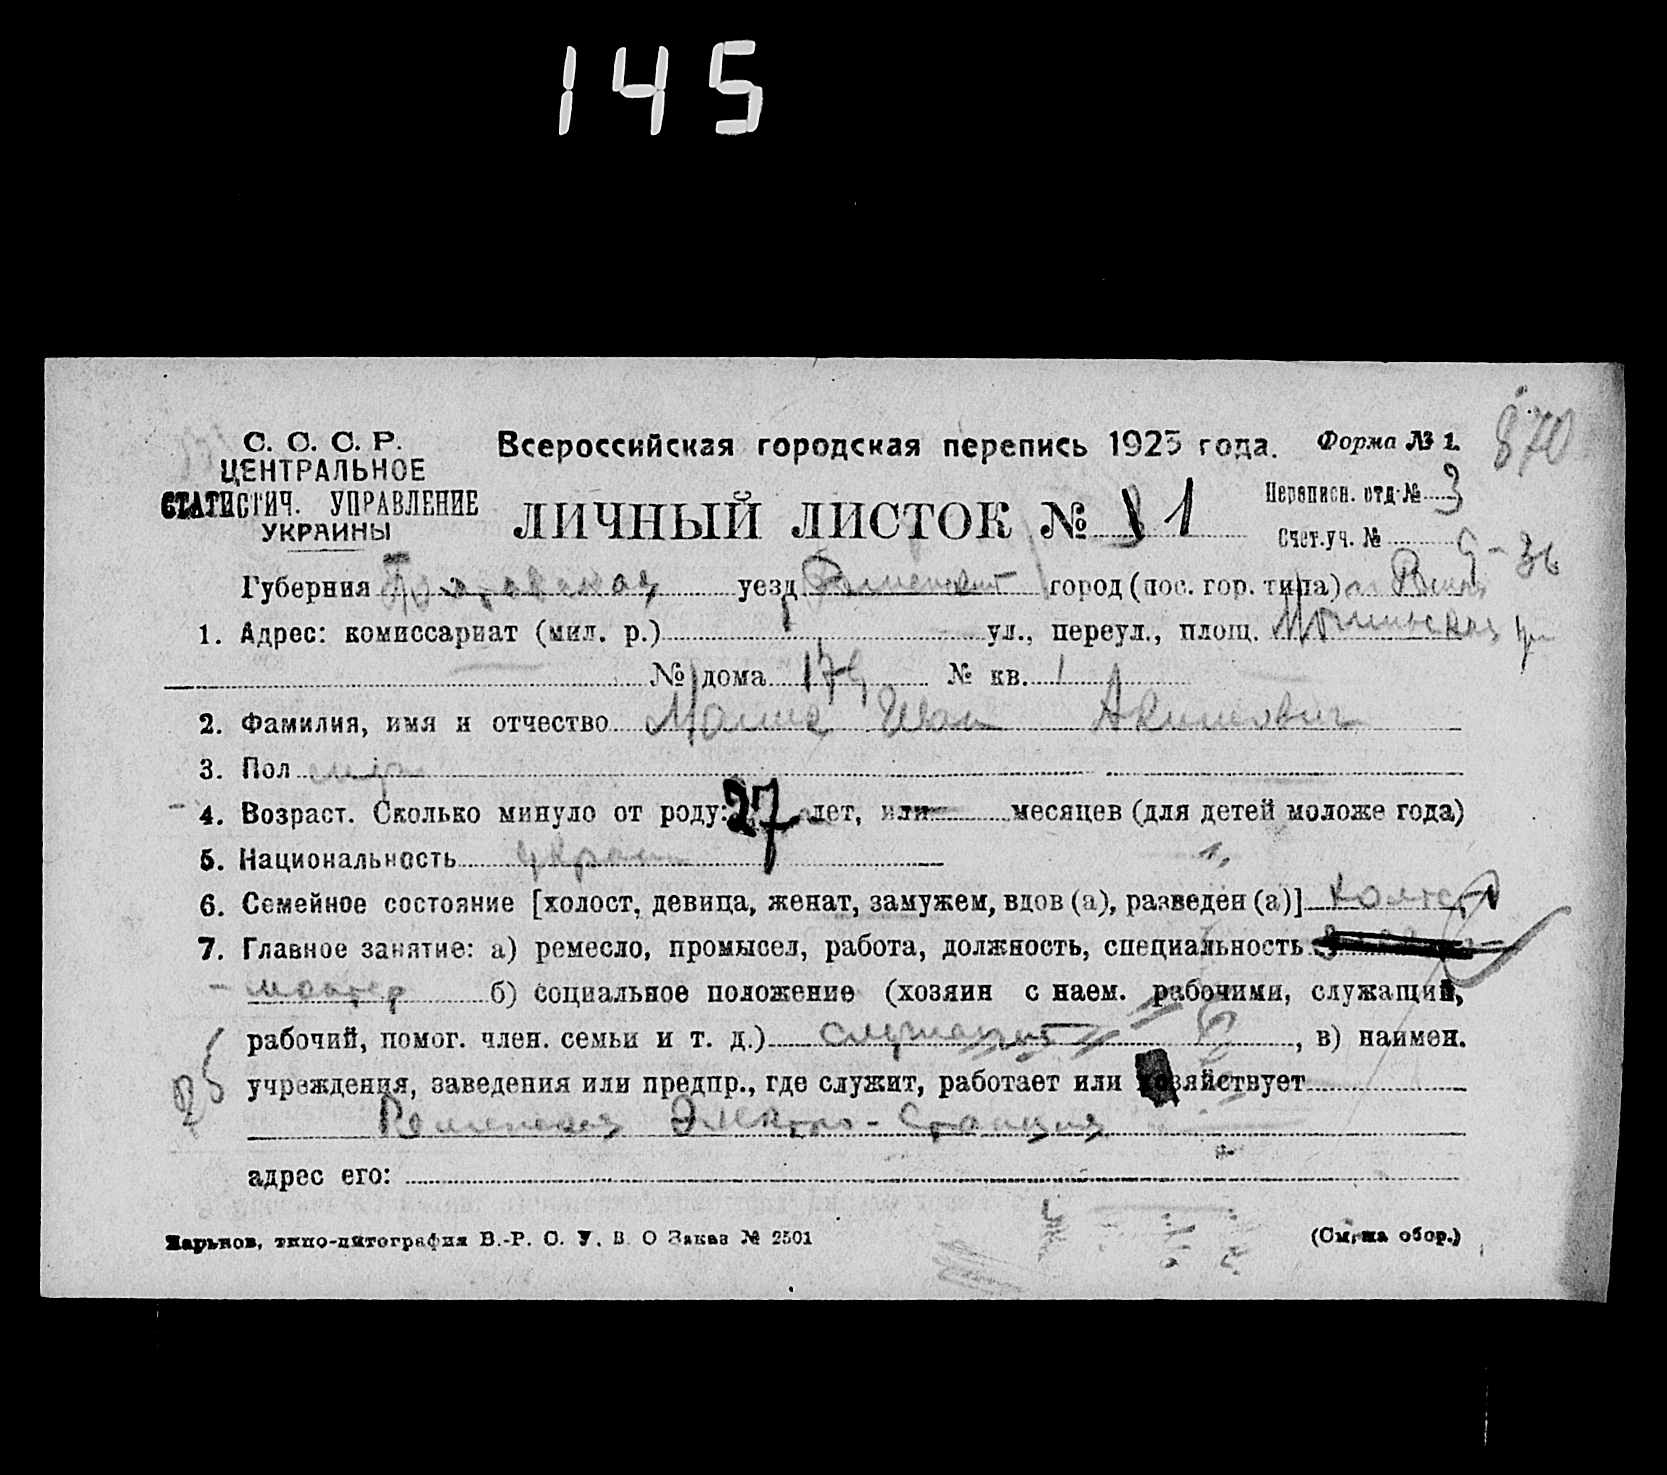 145
870
С. С. С. Р.
ЦЕНТРАЛЬНОЕ
СТАТИСТИЧ. УПРАВЛЕНИЕ
УКРАИНЫ
Всероссийская городская перепись 1923 года.
Форма № 1.
ЛИЧНЫЙ ЛИСТОК № 1
Переписн. отд. № 3
Счет. уч. № 9-36
Губерния Полтавская уезд Роменский город (пос. гор. типа)
1. Адрес: комиссариат (мил. р.) ул., переул., площ.
№ дома 179 № кв. 1
2. Фамилия, имя и отчество Иван Акимович
3. Пол муж
4. Возраст. Сколько минуло от роду: 27 лет, или месяцев (для детей моложе года)
5. Национальность украин
6. Семейное состояние [холост, девица, женат, замужем, вдов (а), разведен (а)] холост
7. Главное занятие: а) ремесло, промысел, работа, должность, специальность
- монтер б) социальное положение (хозяин с наем. рабочими, служащий,
рабочий, помог. член. семьи и т. д.) служащий, в) наимен.
учреждения, заведения или предпр., где служит, работает или хозяйствует
Роменская Электро-Станция
адрес его:
Харьков, типо-литография В.-Р. С. У. В. О Заказ № 2501
(См. на обор.)